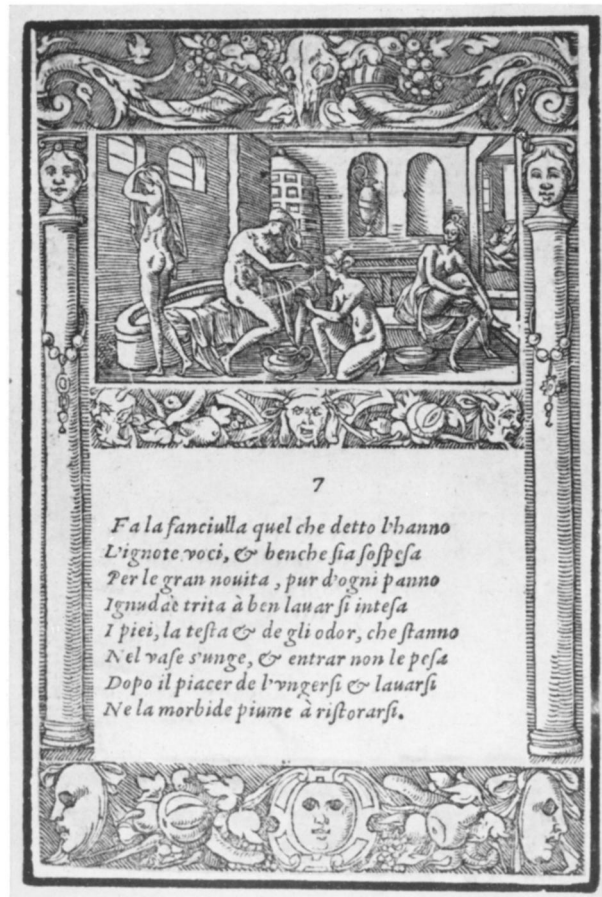 7
Fa la fanciulla quel che detto l'hanno
L'ignote voci, & benche sia sospesa
Per le gran nouita, pur d'ogni panno
Ignuda è trita à ben lauarsi intesa
I piei, la testa & de gli odor, che stanno
Nel vase s'unge, & entrar non le pesa
Dopo il piacer de l'vngersi & lauarsi
Ne la morbide piume à ristorarsi.